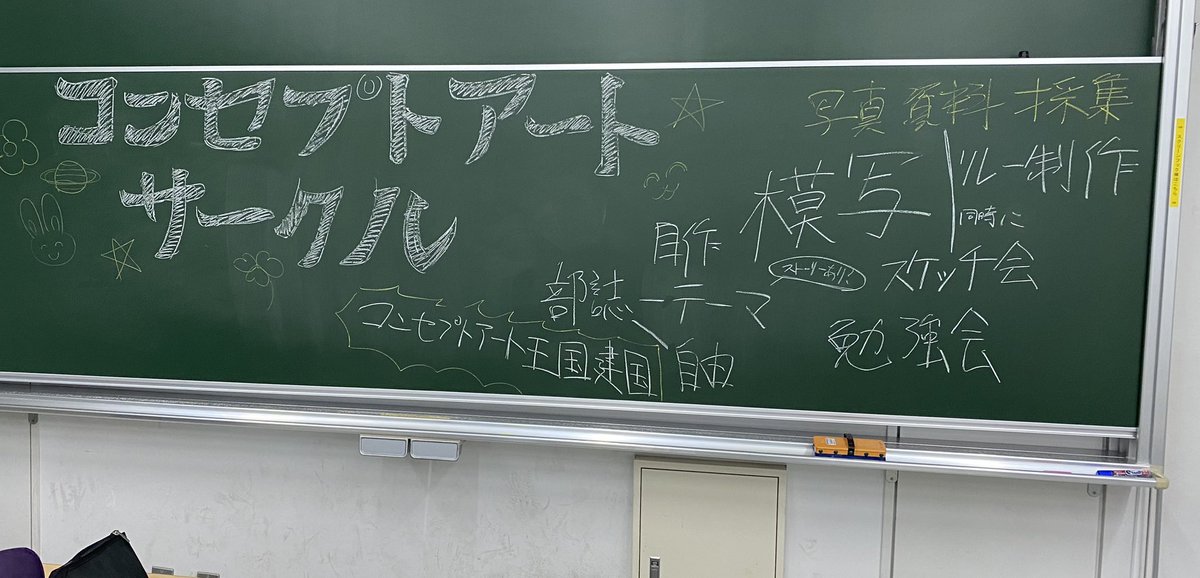 コンセプトアート
サークル
写真資料採集
模写
リレー制作
同時に
自作
ストーリーあり
スケッチ会
部誌
一テーマ
自由
勉強会
コンセプトアート王国建国